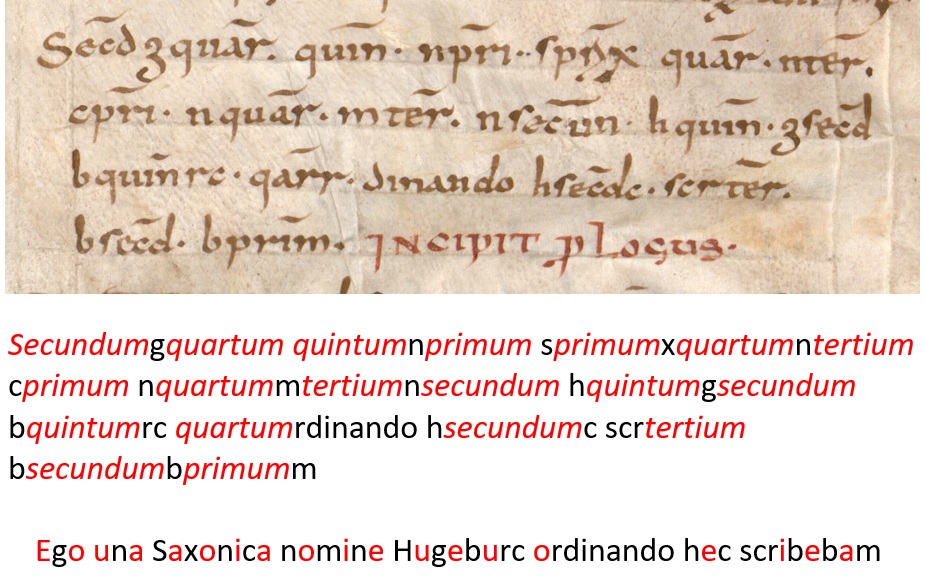 Secd̄gquar̄. quin̄· npr̄i·· sprīx quar̄· nter̄.
cpr̄i· nquar̄· mter̄. nsecūn· hquin̄· gsecd̄
bquin̄rc· qar̄r· dinando hsec̄dc· scrter̄.
bsec̄d· bprim̄. INCIPIT p̱Logus·
Secundumgquartum quintumnprimum sprimumxquartumntertium
cprimum nquartummtertiumnsecundum hquintumgsecundum
bquintumrc quartumrdinando hsecundumc scrtertium
bsecundumbprimumm
Ego una Saxonica nomine Hugeburc ordinando hec scribebam